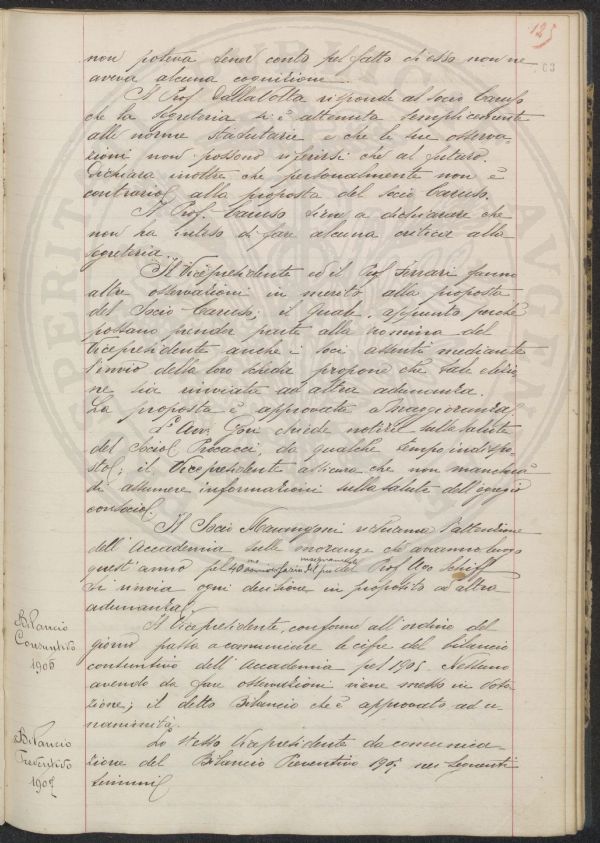 125
83
non poteva tener conto pel fatto ch'esso non ne
aveva alcuna cognizione.
Il Prof. Dalla Volta risponde al socio Caruso
che la Segreteria si è attenuta semplicemente
alle norme statutarie e che le sue osserva-
zioni non possono riferirsi che al futuro.
Dichiara inoltre che personalmente non è
contrario alla proposta del socio Caruso.
Il Prof. Caruso tiene a dichiarare che
non ha inteso di fare alcuna critica alla
Segreteria.
Il Vicepresidente ed il Prof. Ferrari fanno
altre osservazioni in merito alla proposta
del Socio Caruso; il quale, appunto perchè
possano prender parte alla nomina del
Vicepresidente anche i soci assenti mediante
l'invio della loro scheda propone che tale elezio
ne sia rinviata ad altra adunanza.
La proposta è approvata a maggioranza.
L'Avv. Gori chiede notizie sulla salute
del Socio Procacci, da qualche tempo indispo-
sto; il Vicepresidente assicura che non mancherà
di assumere informazioni sulla salute dell'egregio
consocio.
Il Socio Marangoni richiama l'attenzione
dell'Accademia sulle onoranze che avranno luogo
quest'anno pel 40mo insegnamento del Prof Ugo Schiff
Si rinvia ogni decisione in proposito ad altra
adunanza.
Bilancio
Consuntivo
1906
Il Vicepresidente, conforme all'ordine del
giorno passa a comunicare le cifre del bilancio
consuntivo dell'Accademia pel 1905. Nessuno
avendo da fare osservazioni viene messo in vota
zione; il detto Bilancio che è approvato ad u-
nanimità.
Bilancio
Preventivo
1907
Lo stesso Vicepresidente dà comunica-
zione del Bilancio Preventivo 190 nei seguenti
termini